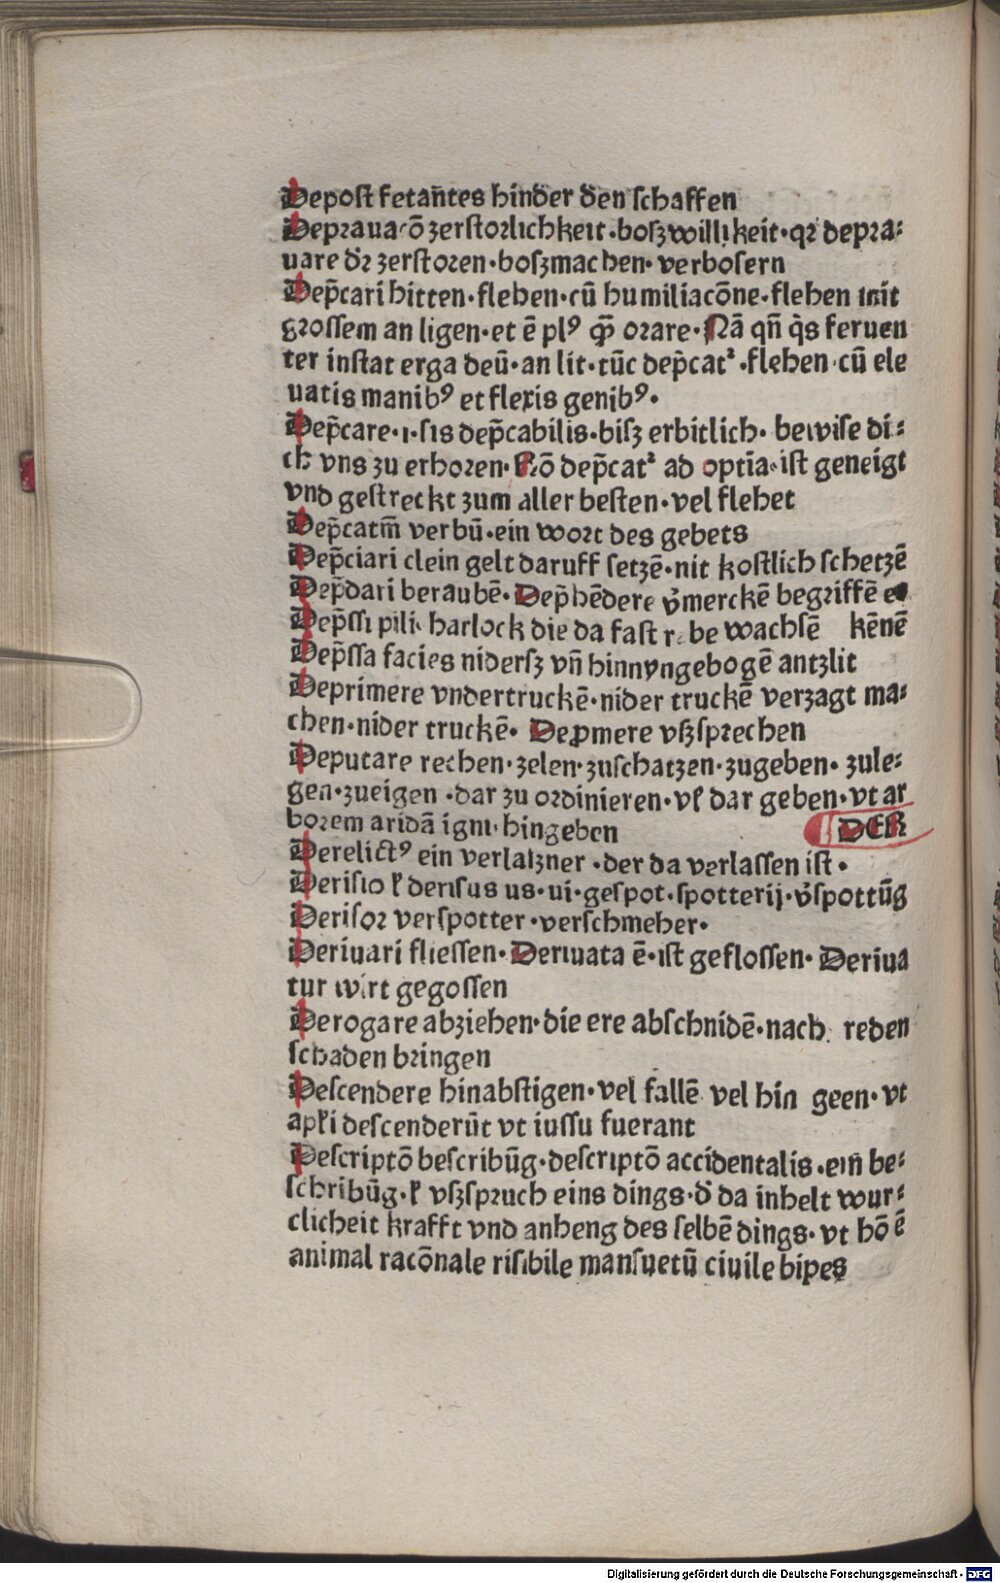 Depost fetan̄tes hinder den schaffen
Deprauacō zerstorlichkeit·boſzwillikeit·qr depra⸗
uare dr̄ zerstoren·boſzmachen·verbosern
Dep̄cari bitten·flehen·cū humiliacōne·flehen mit
grossem an ligen·et ē pl⁹ qȝ̄ orare·Nā qn̄ q̇s feruen
ter instat erga deū·an lit·tūc dep̄catᷣ·flehen·cū ele
uatis manib⁹ et flexis genib⁹·
Dep̄care·i·sis dep̄cabilis·biſz erbitlich·bewise di⸗
ch vns zu erhoren·Rō dep̄catᷣ ad optīa·ist geneigt
vnd gestreckt zum aller besten·vel flehet
Dep̄catm̄ verbū·ein wort des gebets
Dep̄ciari clein gelt daruff setzē·nit kostlich schetzē
Dep̄dari beraubē·Dep̄hēdere v̄merckē begriffē er
Dep̄ssi pili·harlock die da fast be wachsē kēnē
Dep̄ssa facies niderſz vn̄ hinnyngebogē antzlit
Deprimere vndertruckē·nider truckē verzagt ma⸗
chen·nider truckē·Deꝓmere vſzsprechen
Deputare rechen·zelen·zuschatzen·zugeben·zule⸗
gen·zueigen·dar zu ordinieren·vł dar geben·vt ar
borem aridā igni·hingeben DER
Derelict⁹ ein verlaſzner·der da verlassen ist·
Derisio ł derisus us·ui·gespot·spotterij·v̄spottūg
Derisor verspotter·verschmeher·
Deriuari fliessen·Deriuata ē·ist geflossen·Deriua
tur wirt gegossen
Derogare abziehen·die ere abschnidē·nach reden
schaden bringen
Descendere hinabstigen·vel fallē vel hin geen·vt
apłi descenderūt vt iussu fuerant
Descriptō bescribūg·descriptō accidentalis·ein̄ be⸗
schribūg·ł vſzspruch eins dings·d̄ da inhelt wur⸗
clicheit krafft vnd anheng des selbē dings·vt hō ē
animal racōnale risibile mansuetū ciuile bipes
Digitalisierung gefördert durch die Deutsche Forschungsgemeinschaft - DFG